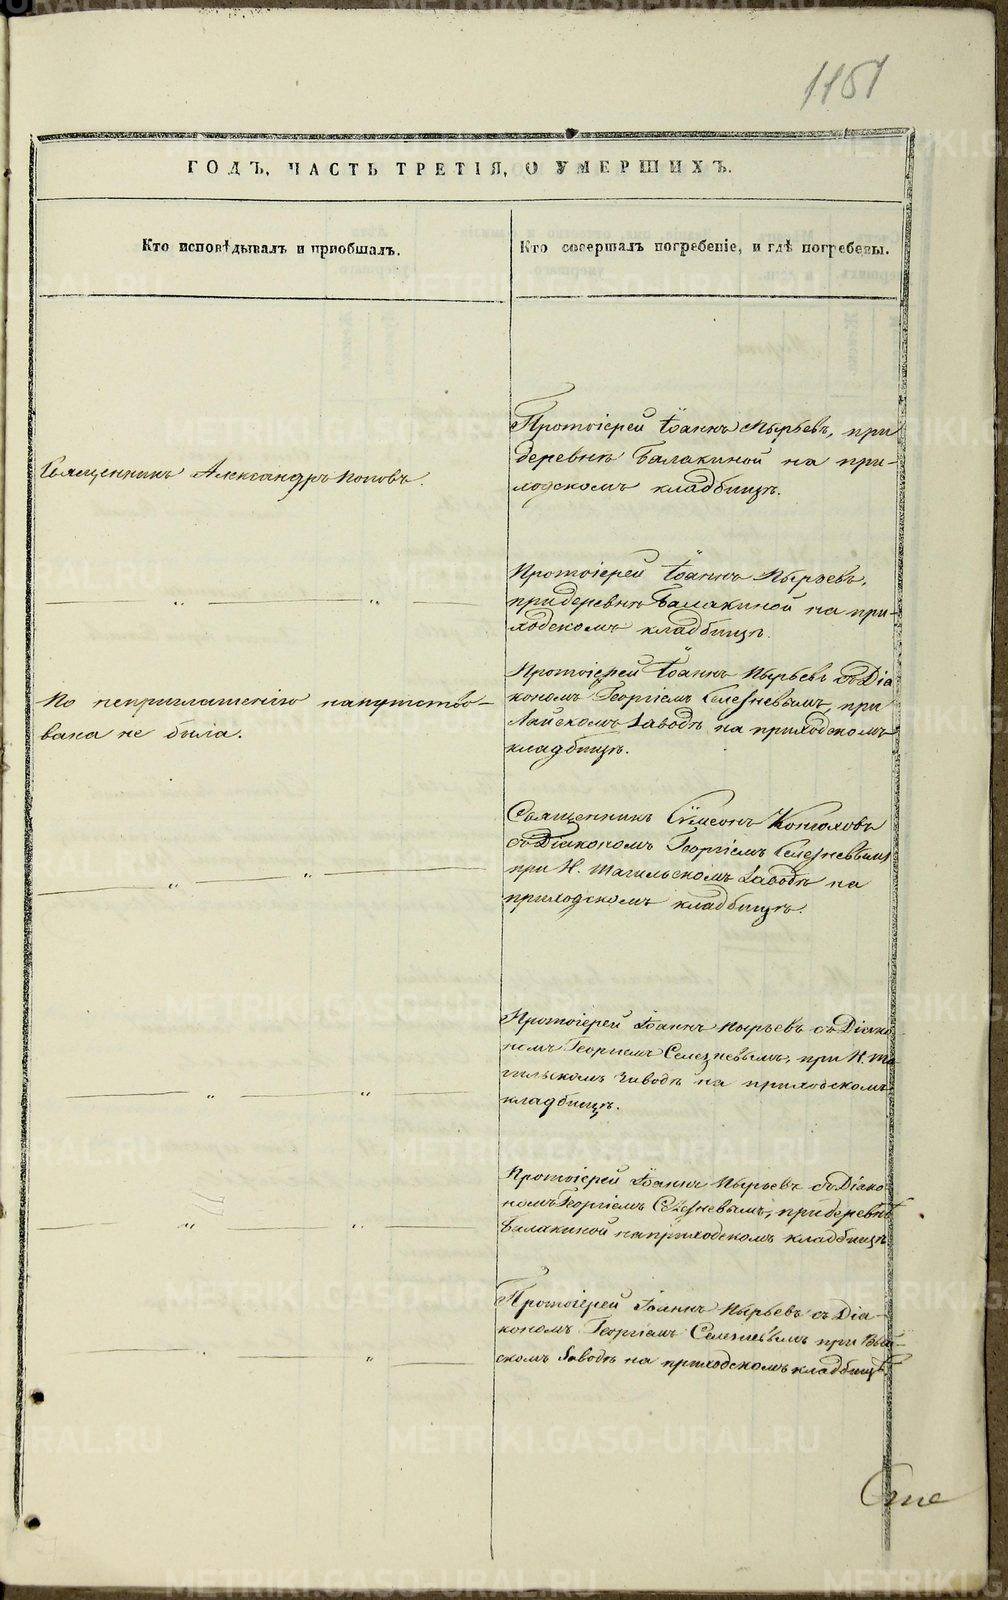 1151
ГОДЪ, ЧАСТЬ ТРЕТІЯ, О УМЕРШИХЪ.
Кто исповѣдывалъ и пріобщалъ.
Кто совершалъ погребеніе, и гдѣ погребены.
Священникъ Александръ Поповъ.
Протоіерей Іоаннъ Пырьевъ, при
деревнѣ Балакиной на при-
ходскомъ кладбищѣ.
— „ — „ —
Протоіерей Іоаннъ Пырьевъ,
при деревнѣ Балакиной на при-
ходскомъ кладбищѣ.
По неприглашенію напутство-
вана не была.
Протоіерей Іоаннъ Пырьевъ съ Діа
кономъ Георгіемъ Селезневымъ, при
Лайскомъ Заводѣ на приходскомъ
кладбищѣ.
— „ — „ —
Священникъ Сѵмеонъ
съ Діакономъ Георгіемъ Селезневымъ
при Н. Тагильскомъ Заводѣ на
приходскомъ кладбищѣ.
— „ — „ —
Протоіерей Іоаннъ Пырьевъ съ Діако
номъ Георгіемъ Селезневымъ, при Н. Та
гильскомъ Заводѣ на приходскомъ
кладбищѣ.
— „ — „ —
Протоіерей Іоаннъ Пырьевъ съ Діако
номъ Георгіемъ Селезневымъ, при деревнѣ
Балакиной на приходскомъ кладбищѣ.
„ —
Протоіерей Іоаннъ Пырьевъ съ Діа-
кономъ Георгіемъ Селезневымъ при Вый-
скомъ Заводѣ на приходскомъ кладбищѣ.
METRIKI.GASO-URAL.RU